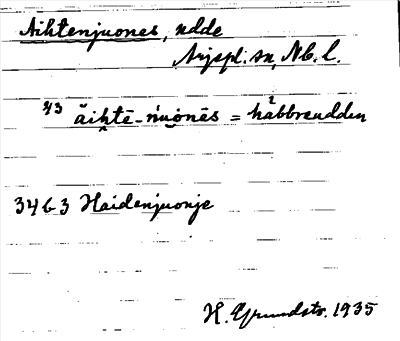 Aihtenjuones, udde
Arjepl. sn, Nb. l.
43 ăi̭htē-ńu̯ȯnēs = hábbreudden
2
3463 Haidenjuonje
H. Grundstr. 1935